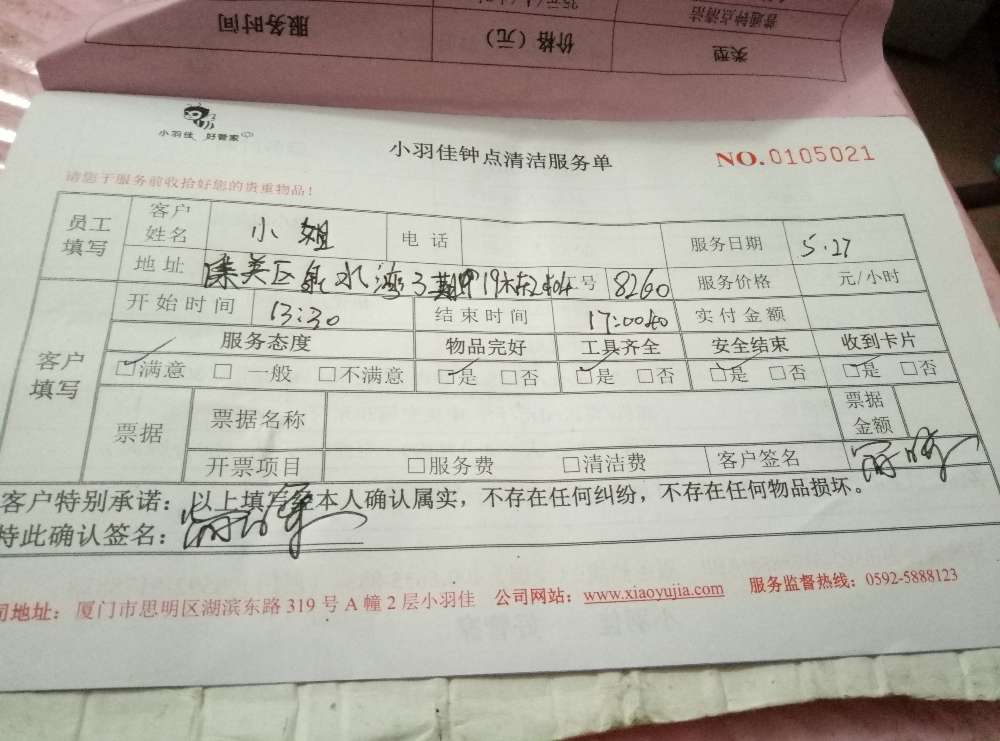 服务时间 价格（元） 类型
普通钟点清洁
小羽佳 好管家
小羽佳钟点清洁服务单
NO.0105021
请您于服务前收拾好您的贵重物品！
员工填写 客户姓名 小姐 电话 服务日期 5.27
地址 集美区泉水湾3期 号 8260 服务价格 元/小时
客户填写 开始时间 13:30 结束时间 17:00 实付金额
服务态度 物品完好 工具齐全 安全结束 收到卡片
☑满意 □一般 □不满意 ☑是 □否 ☑是 □否 ☑是 □否 ☑是 □否
票据 票据名称 票据金额
开票项目 □服务费 □清洁费 客户签名
客户特别承诺：以上填写经本人确认属实，不存在任何纠纷，不存在任何物品损坏。
特此确认签名：
司地址：厦门市思明区湖滨东路 319 号 A 幢 2 层小羽佳 公司网站：www.xiaoyujia.com 服务监督热线：0592-5888123